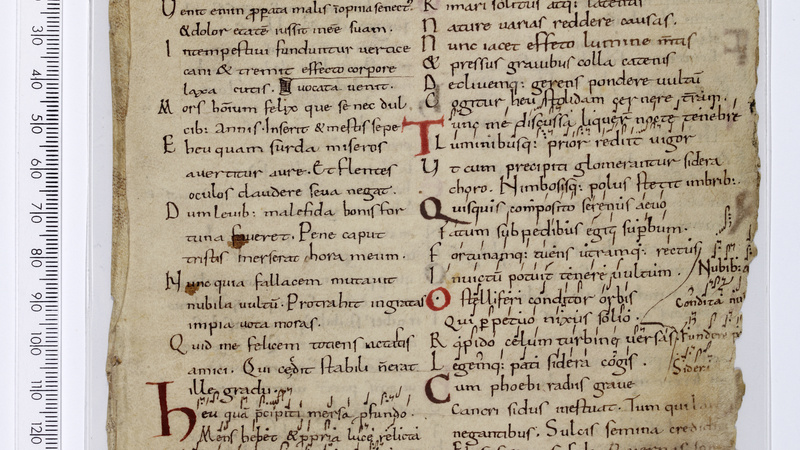 Uenit enim ppata malis ropina senect
& dolor etatē iussit inee suam.
Intempestiui funduntur uertice
cani & tremit effecto corpore
laxa cutis. uocata uenit.
Mors hoīum felix que se nec dul
cib: annis. Inserit & mestis sepe
Eheu quam surda miseros
auertitur aure. Et flentes
oculos claudere seua negat.
Dum leuib: malefida bonis for
tuna faueret. Pene caput
tristis merserat hora meum.
Nunc quia fallacem mutauit
nubila uultū. Protrahit ingratas
impia uota moras.
Quid me felicem totiens iactastis
amici. Qui cędit stabili ñ erat
ille gradu.
heu quā pcipiti mersa pfundo.
Mens hebet & ppria luce relicta
rimari solitus atq: latentis
Nature uarias reddere causas.
Nunc iacet effeto lumine mtis
& pressus grauibus colla catenis
Decliuemq: gerens pondere uultū
Cogitur heu stolidam cernere trām.
Tunc me discussa liquer nocte tenebre
Luminibusq: prior rediit uigor
Ut cum precipiti glomerantur sidera
choro. Nimbosisq: polus stetit imbrib:.
Quisquis composito serenus aeuo
Fatum sub pedibus egit supbum.
Fortunamq: tuens utramq: rectus
Inuictū potuit tenere uultum.
Nubib: a
Condita nu
Fundere
Sider
O stelliferi conditor orbis
Qui ppetuo nixus solio.
Rapido celum turbine uersas
Legemq: pati sidera cogis.
Cum phoebi radiis graue
Cancri sidus inestuat. Tum qui
negantibus. Sulcis semina credi